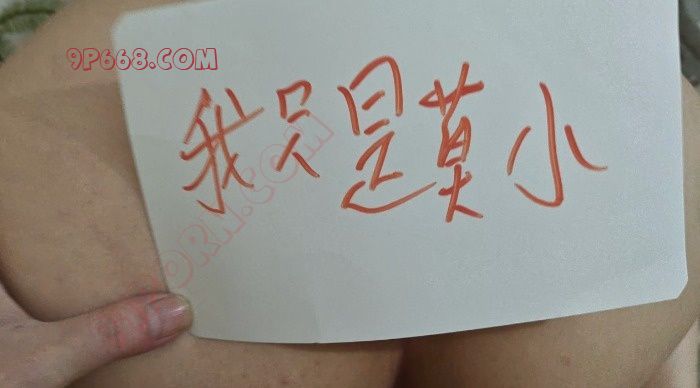 9P668.COM
我只是莫小